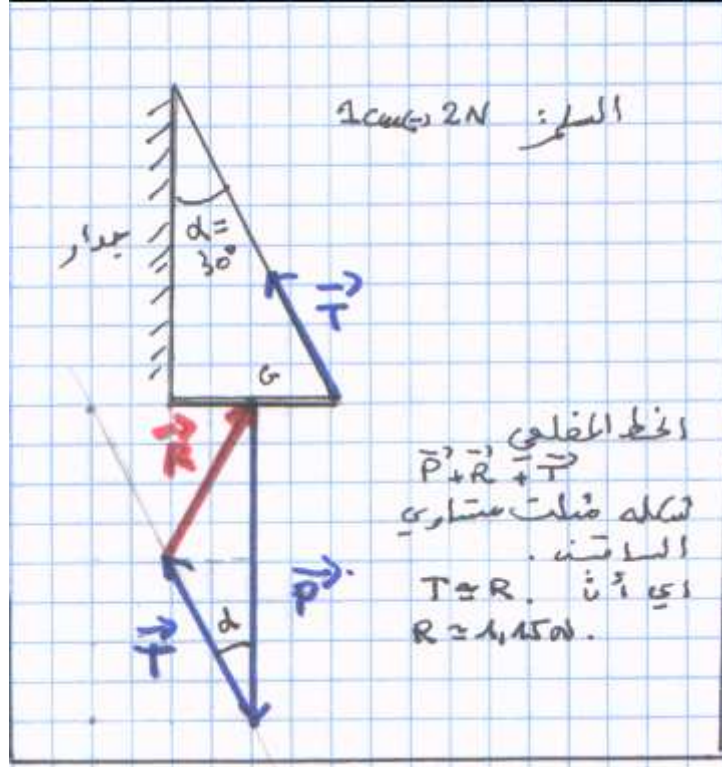 السلم: 1cm↔2N
جدار
α=
30°
T
G
R
الخط المغلق
P+R+T
شكله مثلث متساوي
الساقين.
أي أن T≃R.
R≃1,15N.
P
α
T